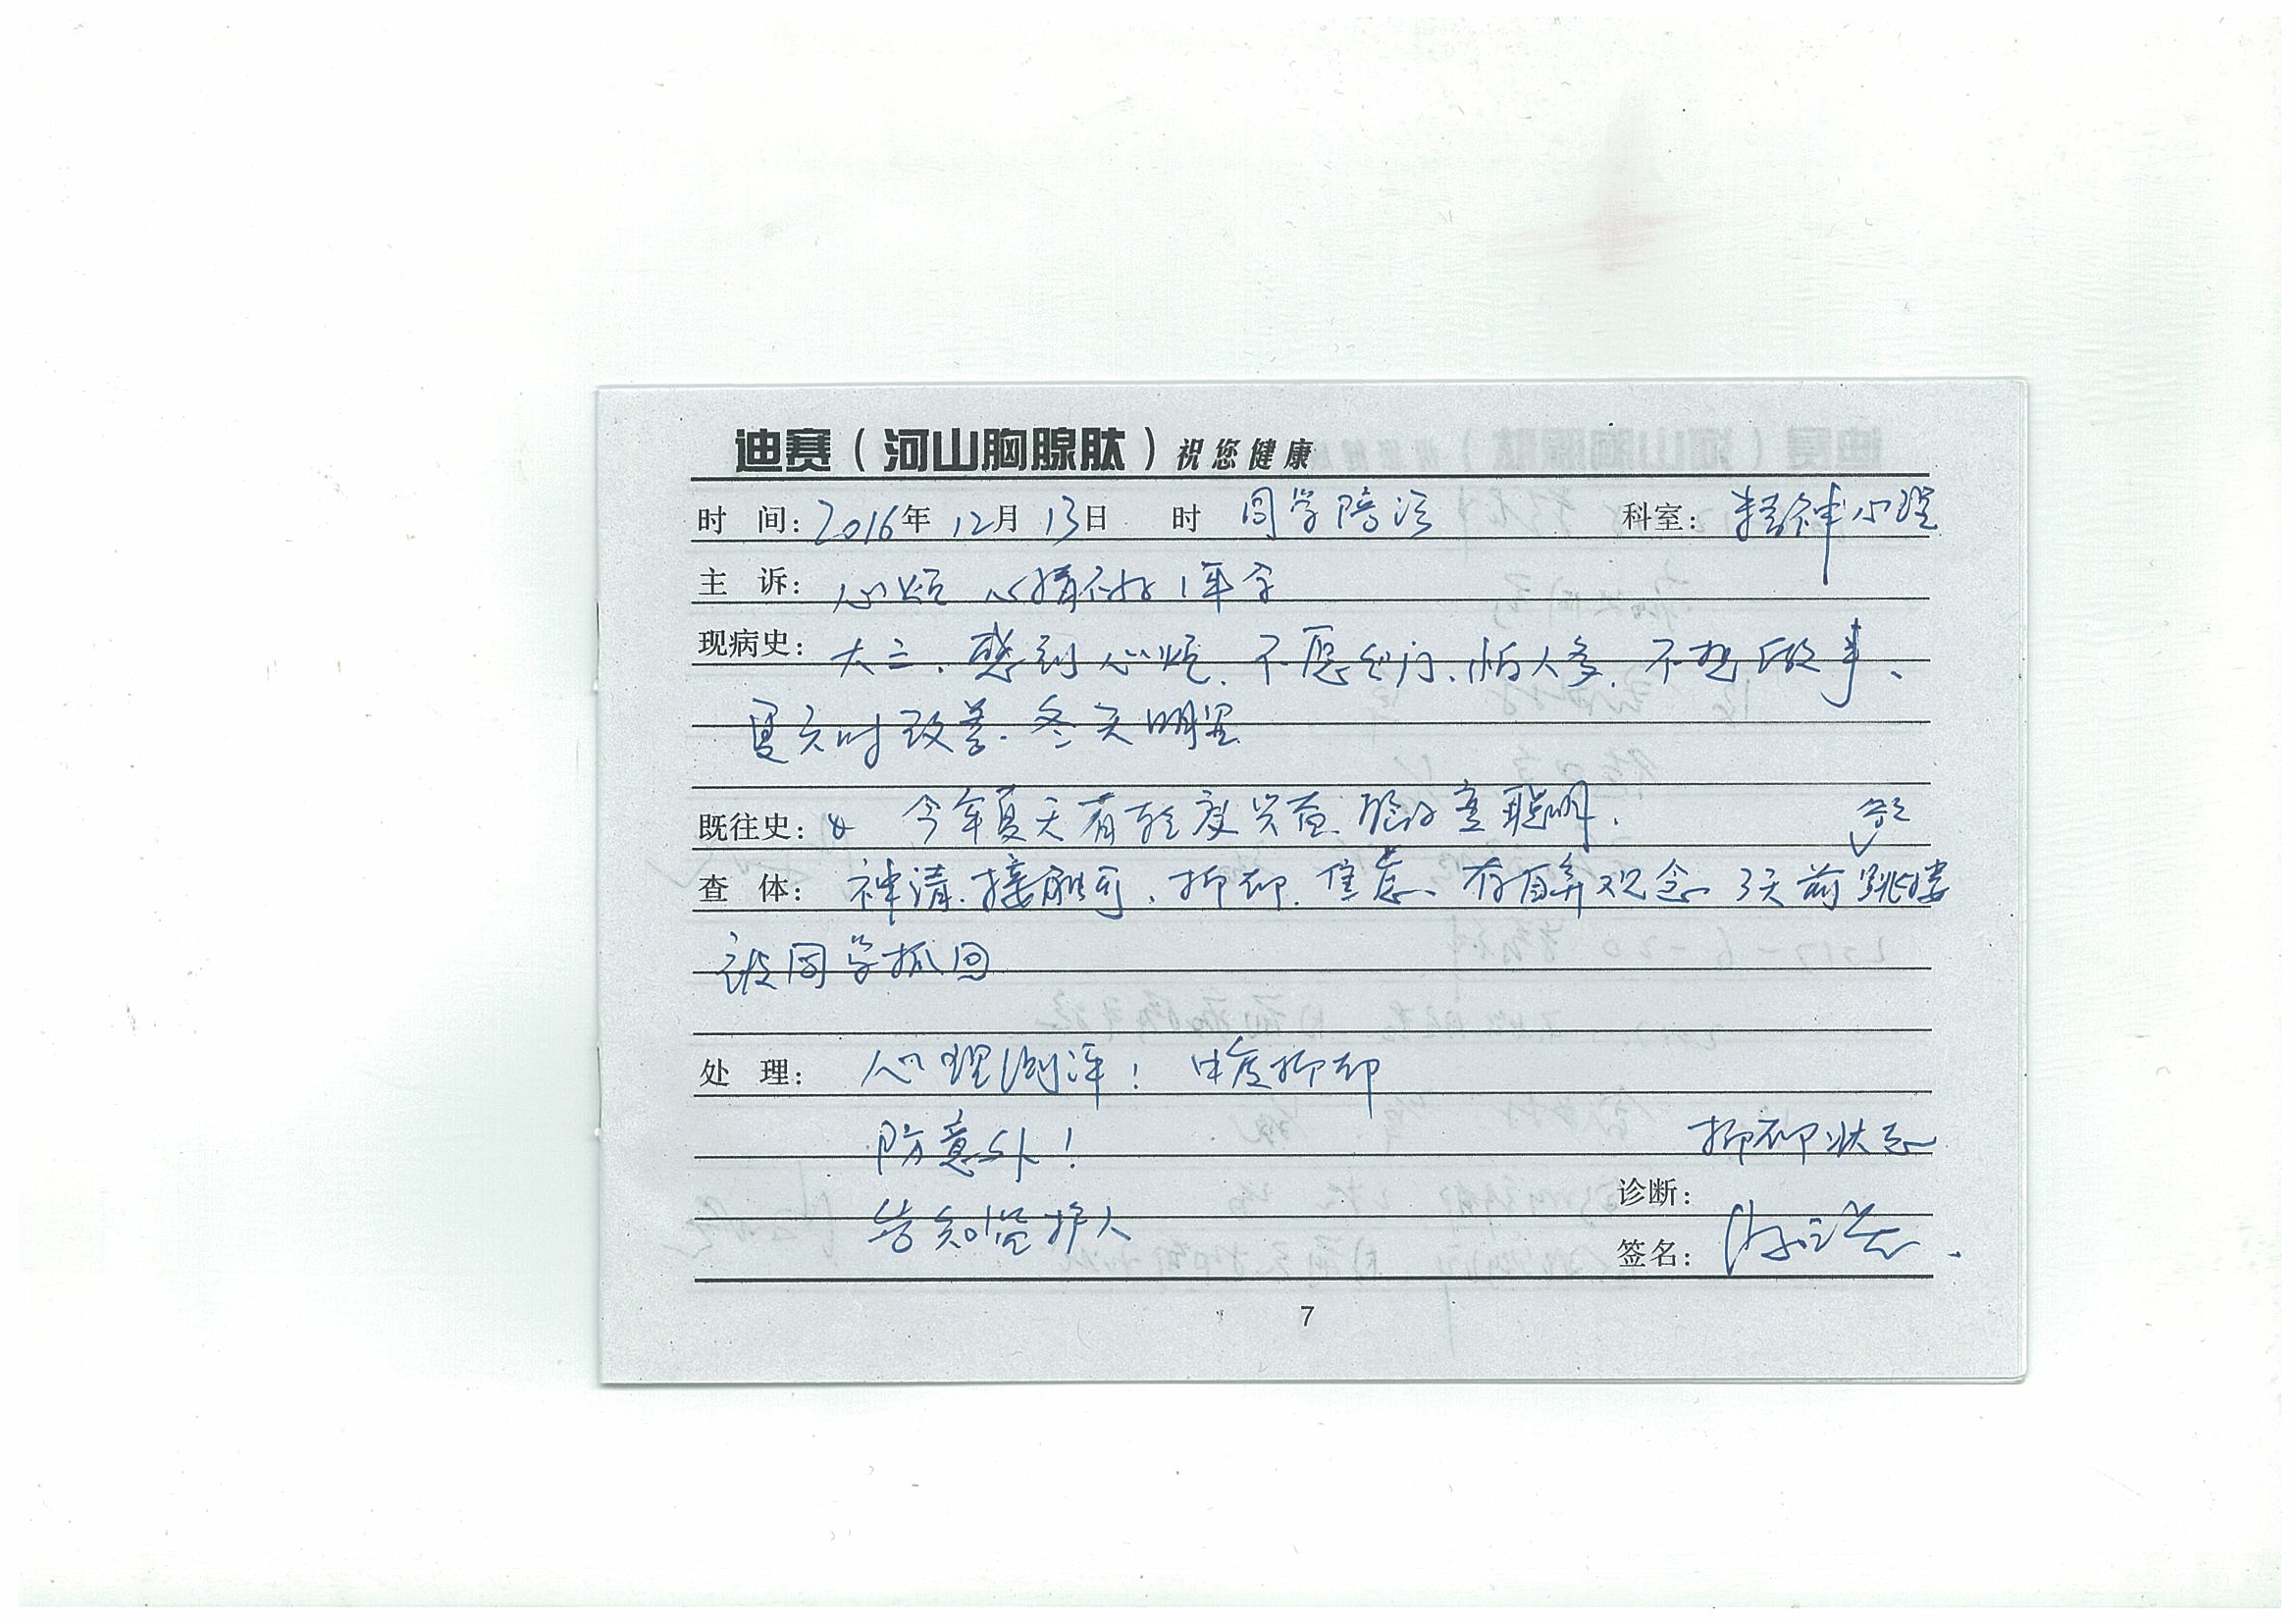 迪赛（河山胸腺肽）祝您健康
时 间：2016年 12月 13日 时 同学陪诊 科室：精神心理
主 诉：心烦 心情不好1年余
现病史：大三、感到心烦、不愿出门、怕人多、不想做事、
夏天时改善、冬天明显
既往史： 今年夏天有轻度兴奋、脑子变聪明、
欲
查 体：神清、接触可、抑郁、焦虑、有自弃观念、3天前跳楼
被同学抓回
处 理：心理测评：中度抑郁
防意外！
抑郁状态
告知监护人
诊断：
签名：
7